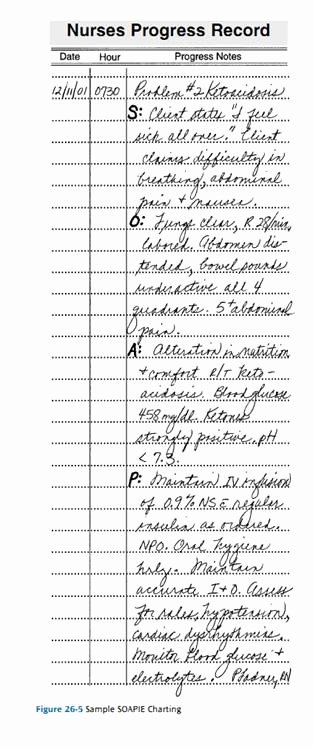 Nurses Progress Record
Date Hour Progress Notes
12/11/01 0730 Problem #2 Ketoacidosis
S: Client states "I feel
sick all over." Client
claims difficulty in
breathing, abdominal
pain + nausea.
O: Lungs clear, R 28/min,
labored. Abdomen dis-
tended, bowel sounds
underactive all 4
quadrants. 5+ abdominal
pain.
A: Alteration in nutrition
+ comfort R/T Keto-
acidosis. Blood glucose
458 mg/dl. Ketones
strongly positive. pH
< 7.3.
P: Maintain IV infusion
of 0.9% NS c̄ regular
insulin as ordered.
NPO. Oral hygiene
hrly. Maintain
accurate I+O. Assess
for rales, hypotension,
cardiac dysrhythmias.
Monitor blood glucose +
electrolytes. P Ladner, RN
Figure 26-5 Sample SOAPIE Charting